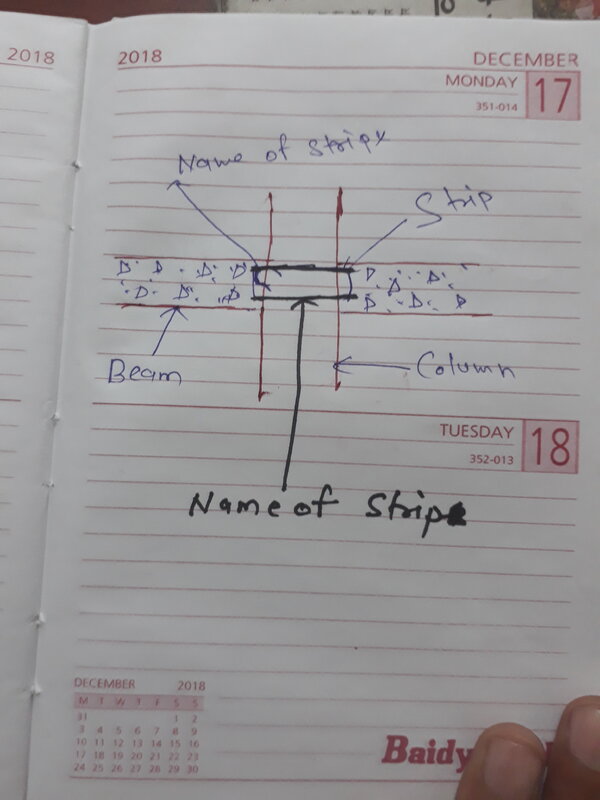 2018
2018
DECEMBER
MONDAY
351-014
17
Name of Strip
Strip
Beam
Column
TUESDAY
352-013
18
Name of Strip
DECEMBER 2018
M T W T F S S
31 1 2
3 4 5 6 7 8 9
10 11 12 13 14 15 16
17 18 19 20 21 22 23
24 25 26 27 28 29 30
Baidy